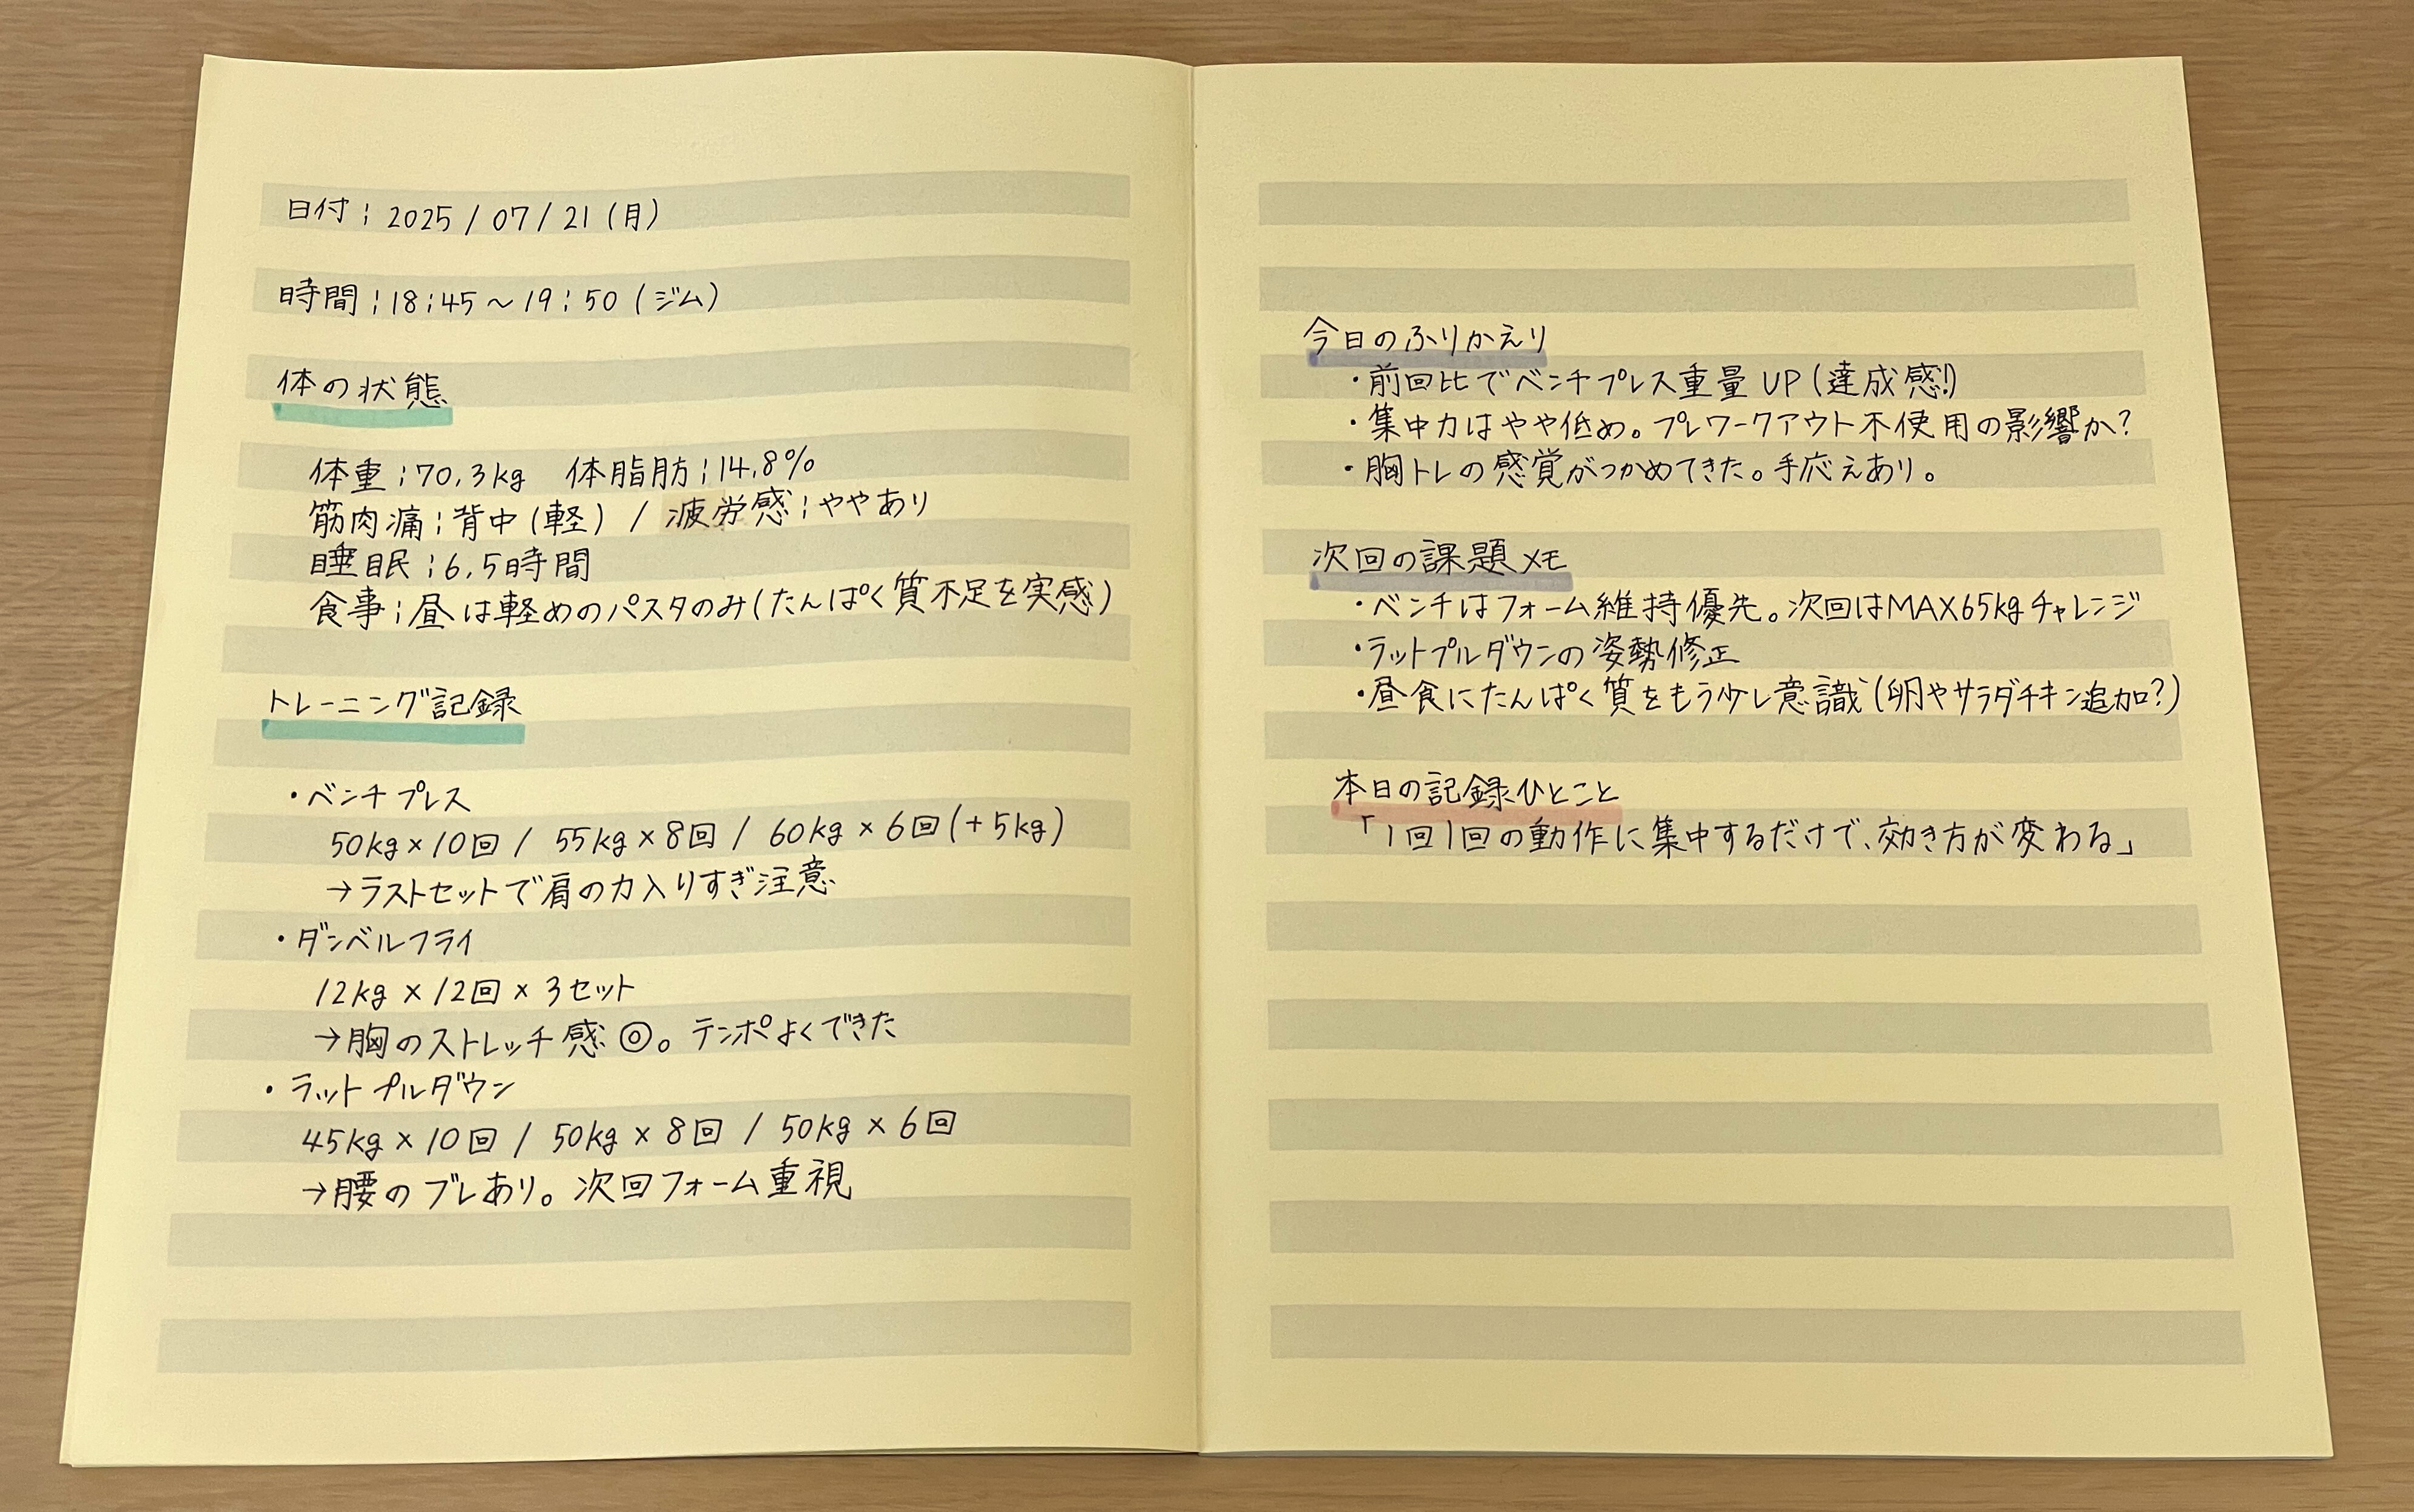 日付：2025/07/21（月）
時間：18：45～19：50（ジム）
体の状態
体重：70.3kg　体脂肪：14.8%
筋肉痛：背中（軽）/ 疲労感：ややあり
睡眠：6.5時間
食事：昼は軽めのパスタのみ（たんぱく質不足を実感）
トレーニング記録
・ベンチプレス
50kg×10回 / 55kg×8回 / 60kg×6回（+5kg）
→ラストセットで肩の力入りすぎ注意
・ダンベルフライ
12kg×12回×3セット
→胸のストレッチ感◎。テンポよくできた
・ラットプルダウン
45kg×10回 / 50kg×8回 / 50kg×6回
→腰のブレあり。次回フォーム重視
今日のふりかえり
・前回比でベンチプレス重量UP（達成感!）
・集中力はやや低め。プレワークアウト不使用の影響か?
・胸トレの感覚がつかめてきた。手応えあり。
次回の課題メモ
・ベンチはフォーム維持優先。次回はMAX65kgチャレンジ
・ラットプルダウンの姿勢修正
・昼食にたんぱく質をもう少し意識（卵やサラダチキン追加?）
本日の記録ひとこと
「1回1回の動作に集中するだけで、効き方が変わる」